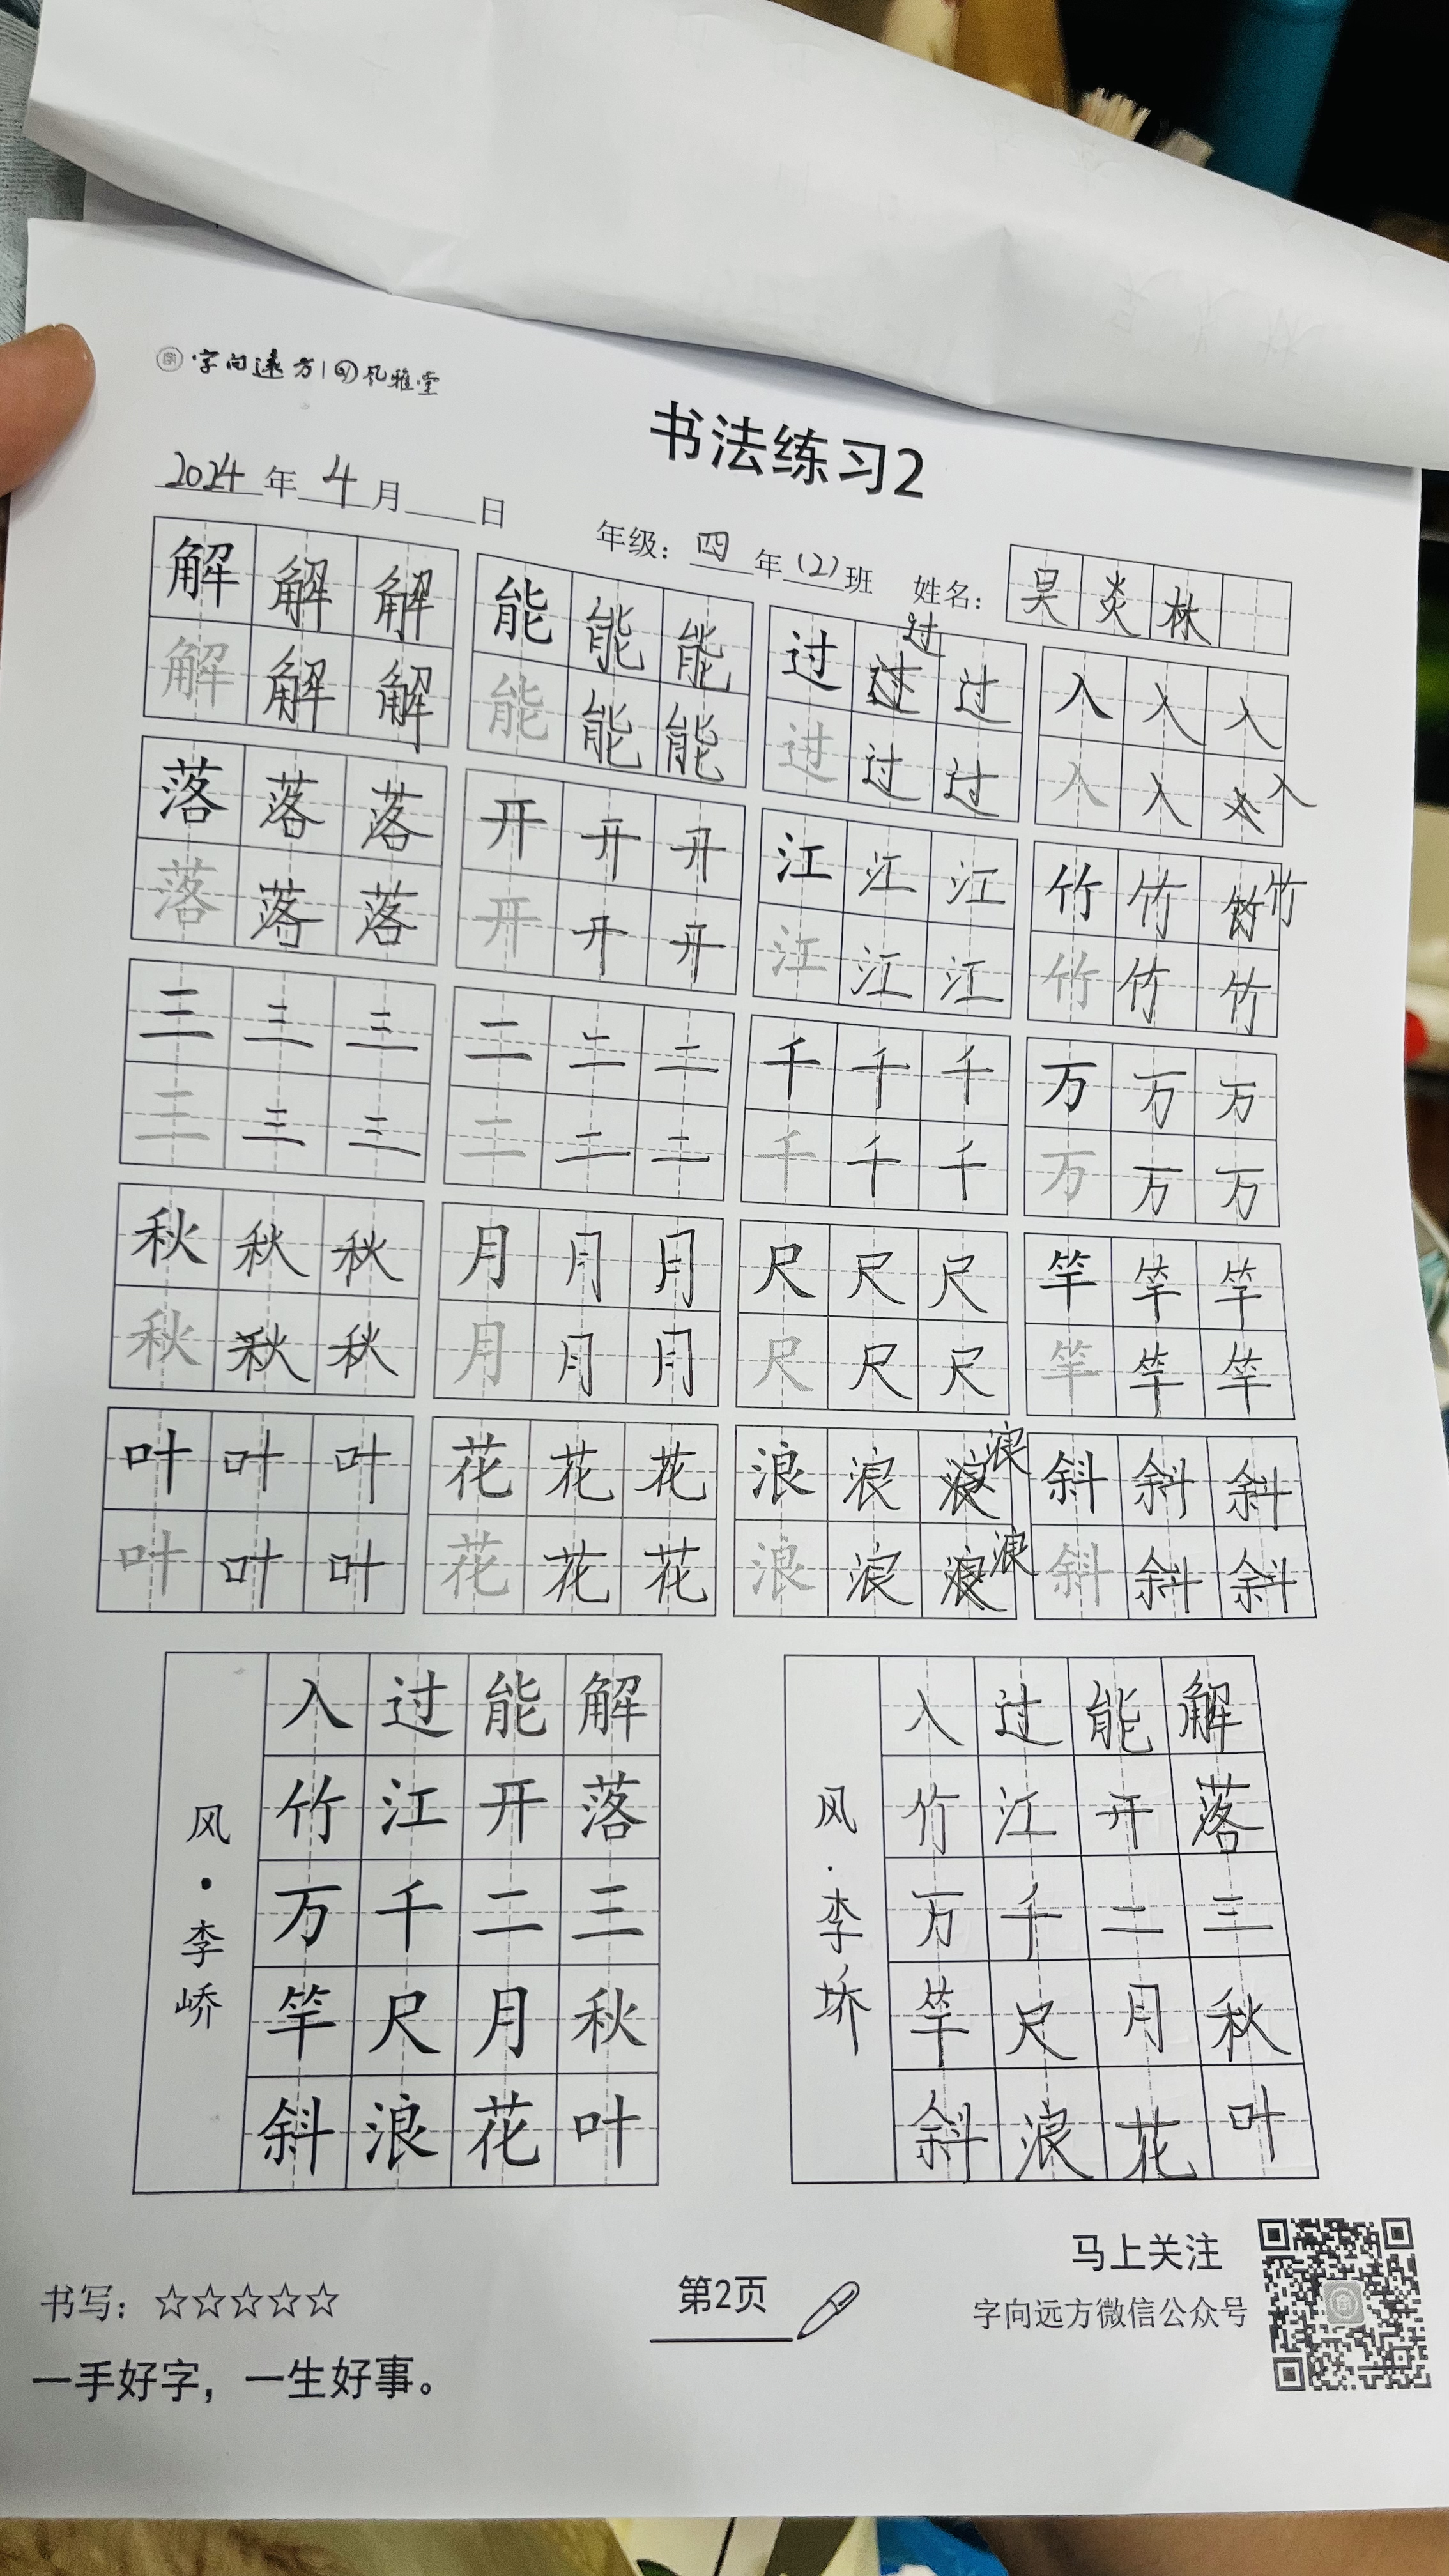 字向远方 风雅堂
书法练习2
2024年4月 日 年级：四年(2)班 姓名：吴炎林
解解解 能能能 过过过过 入入入
解解解 能能能 过过过 入入入入
落落落 开开开 江江江 竹竹竹竹
落落落 开开开 江江江 竹竹竹
三三三 二二二 千千千 万万万
三三三 二二二 千千千 万万万
秋秋秋 月月月 尺尺尺 竿竿竿
秋秋秋 月月月 尺尺尺 竿竿竿
叶叶叶 花花花 浪浪浪浪 斜斜斜
叶叶叶 花花花 浪浪浪浪 斜斜斜
解落三秋叶
能开二月花
过江千尺浪
入竹万竿斜
风·李峤
解落三秋叶
能开二月花
过江千尺浪
入竹万竿斜
风·李峤
书写：☆☆☆☆☆
一手好字，一生好事。
第2页
马上关注
字向远方微信公众号